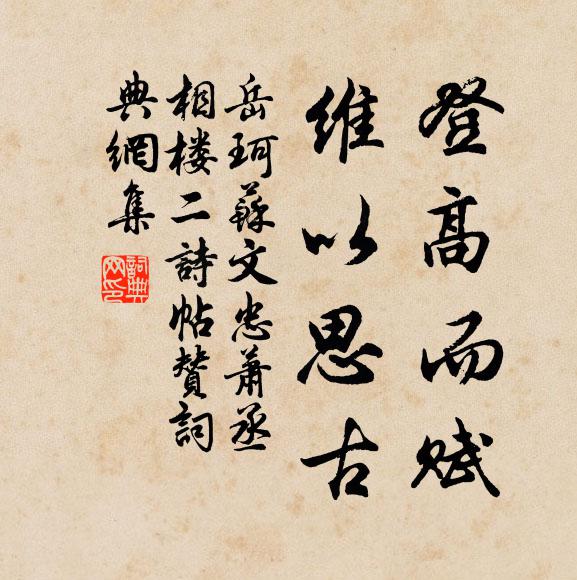 登高而赋
維以思古
岳珂蘇文忠蕭丞
相楼二詩帖贊詞
典網集
詞典
网印